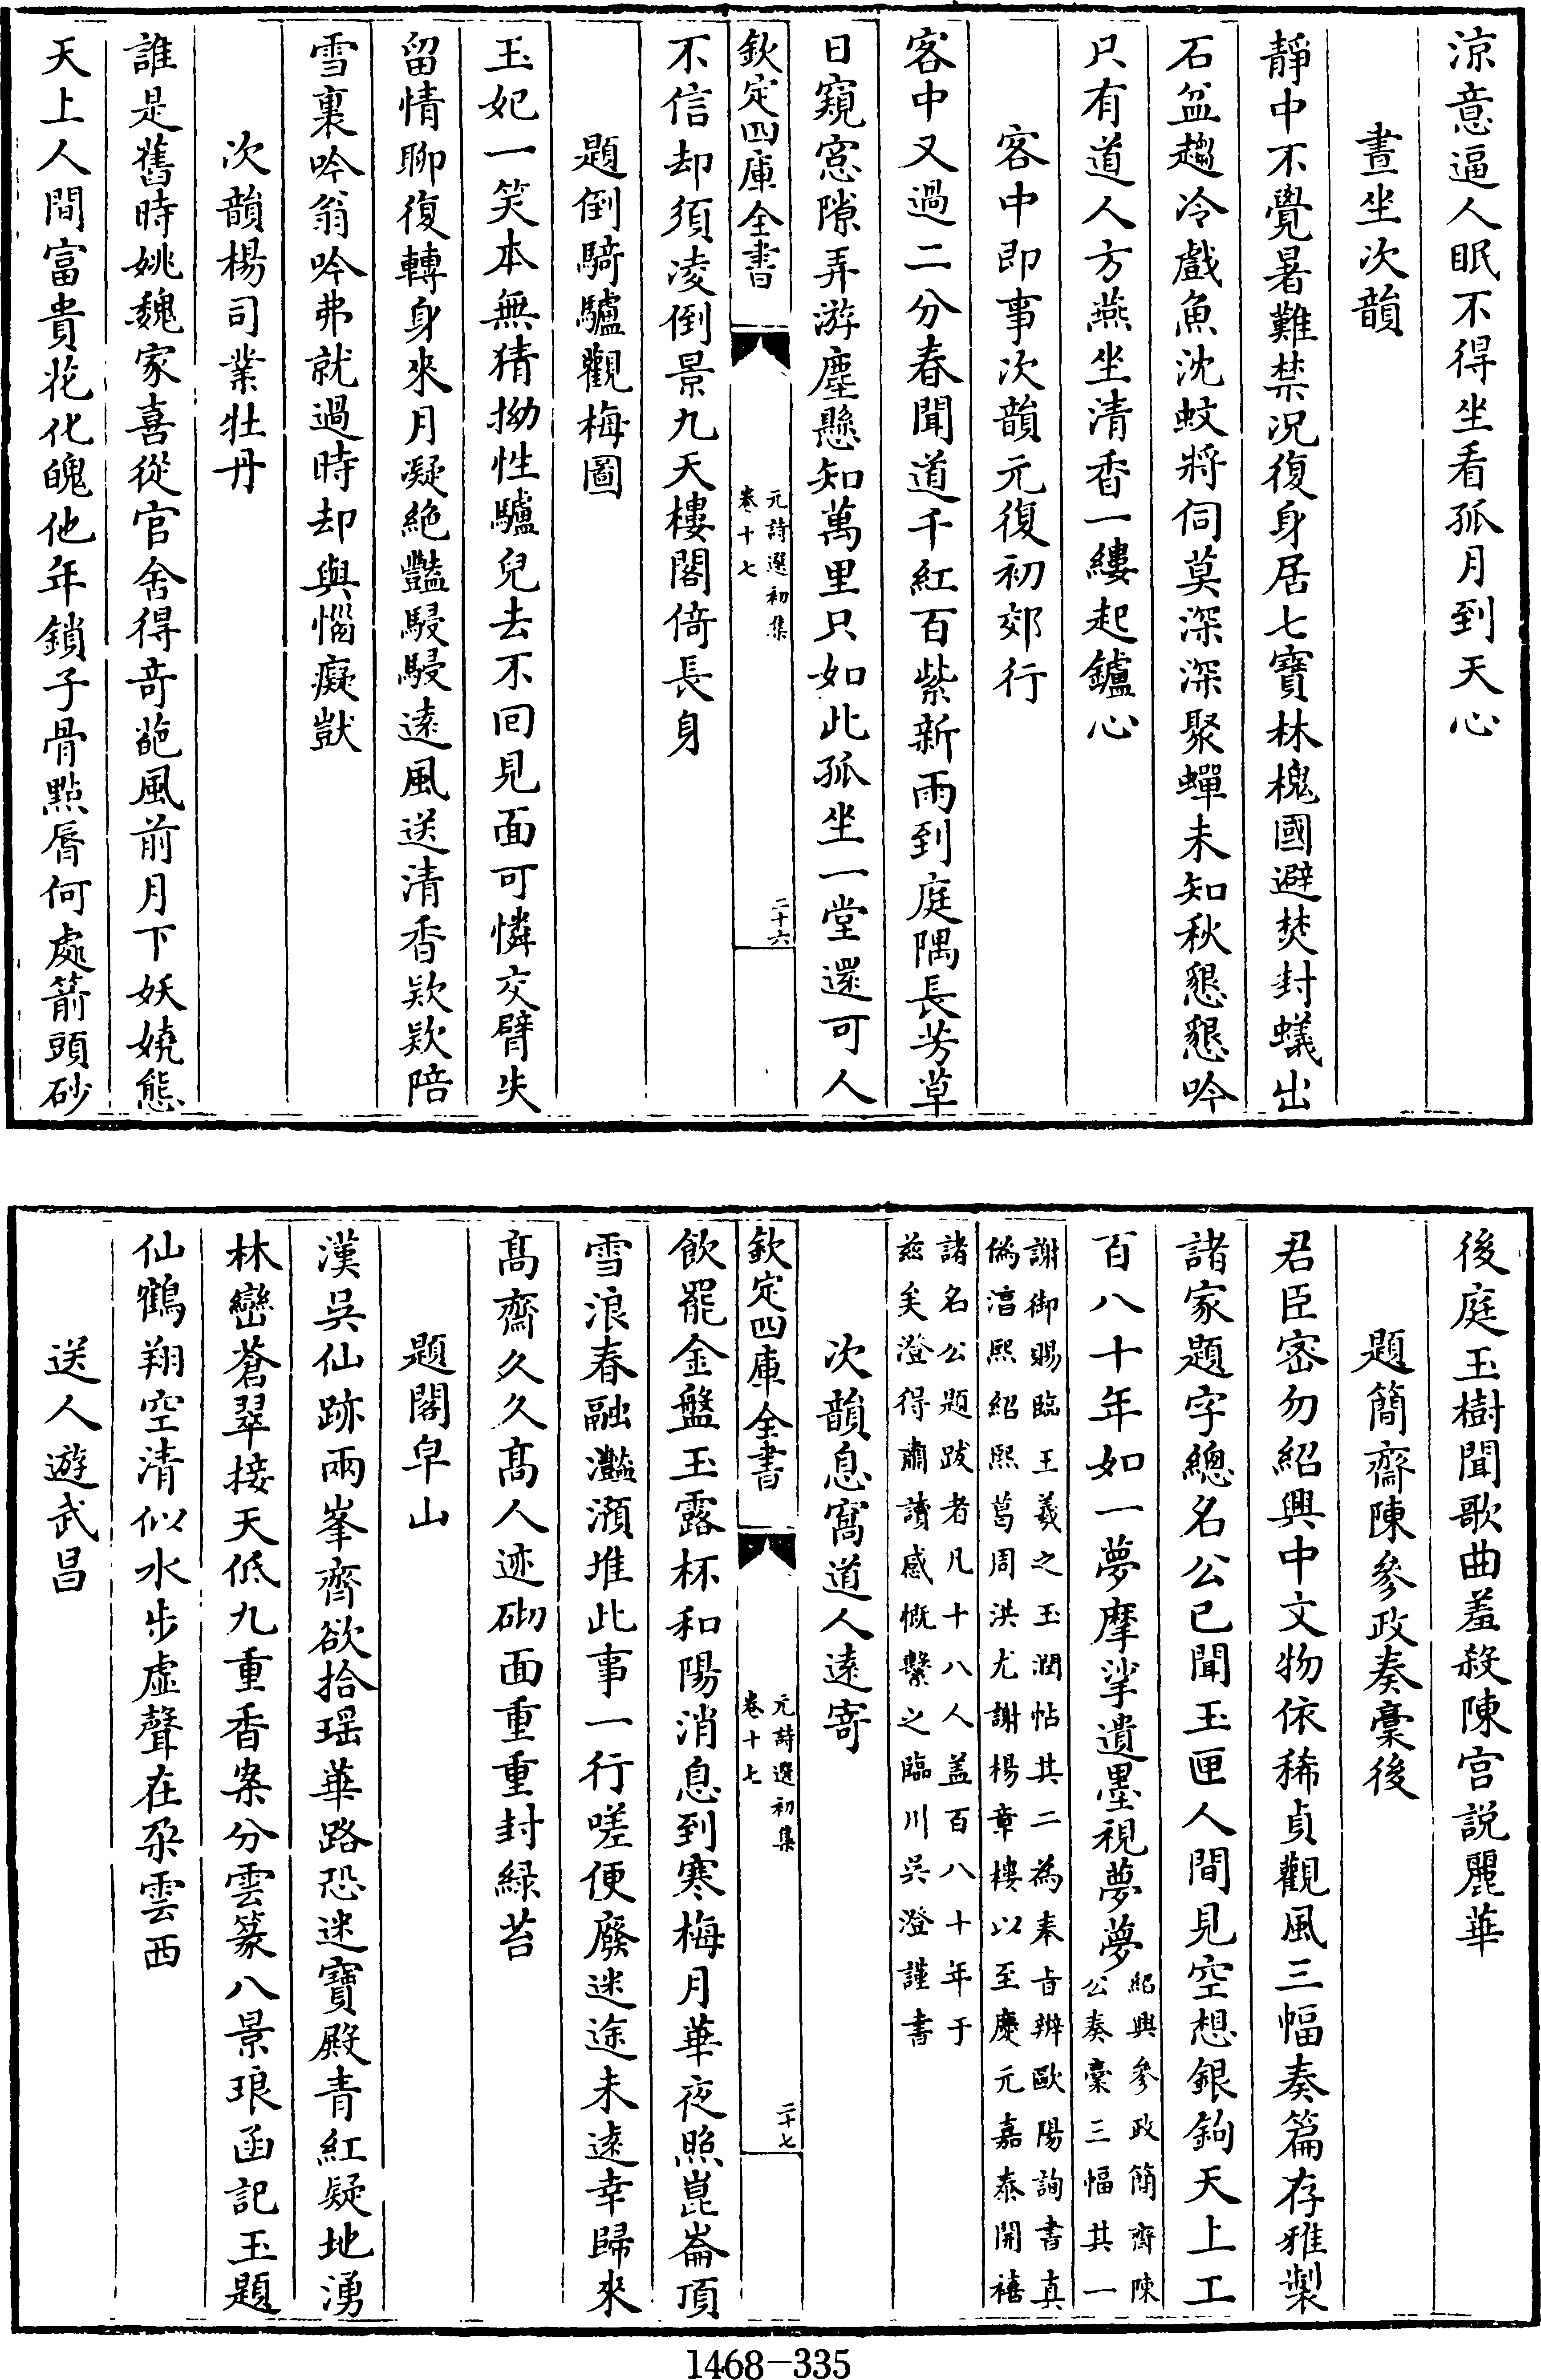 涼意逼人眠不得坐看孤月到天心
晝坐次韻
靜中不覺暑難禁況復身居七寶林槐國避焚封蟻出
石盆趨冷戲魚沈蚊將伺莫深深聚蟬未知秋懇懇吟
只有道人方燕坐清香一縷起鑪心
客中即事次韻元復初郊行
客中又過二分春聞道千紅百紫新雨到庭隅長芳草
日窺窓隙弄游塵懸知萬里只如此孤坐一堂還可人
欽定四庫全書
元詩選初集
卷十七
二十六
不信却須凌倒景九天樓閣倚長身
題倒騎驢觀梅圖
玉妃一笑本無猜拗性驢兒去不回見面可憐交臂失
留情聊復轉身來月凝絶豔駸駸逺風送清香欵欵陪
雪裏吟翁吟弗就過時却與惱癡獃
次韻楊司業牡丹
誰是舊時姚魏家喜從官舍得竒葩風前月下妖嬈態
天上人間富貴花化魄他年鎖子骨點脣何處箭頭砂
後庭玉樹聞歌曲羞殺陳宫説麗華
題簡齋陳參政奏稾後
君臣密勿紹興中文物依稀貞觀風三幅奏篇存雅製
諸家題字總名公已聞玉匣人間見空想銀鉤天上工
百八十年如一夢摩挲遺墨視夢夢
紹興參政簡齋陳
公奏稾三幅其一
謝御賜臨王羲之玉潤帖其二為奉旨辨歐陽詢書真
偽淳熙紹熙葛周洪尤謝楊章樓以至慶元嘉泰開禧
諸名公題跋者凡十八人盖百八十年于
兹矣澄得肅讀感慨繫之臨川吳澄謹書
次韻息窩道人逺寄
欽定四庫全書
元詩選初集
卷十七
二十七
飲罷金盤玉露杯和陽消息到寒梅月華夜照崑崙頂
雪浪春融灩澦堆此事一行嗟便廢迷途未逺幸歸來
髙齋久久髙人迹砌面重重封緑苔
題閣皁山
漢吳仙跡兩峯齊欲拾瑶華路恐迷寶殿青紅疑地湧
林巒蒼翠接天低九重香案分雲篆八景琅函記玉題
仙鶴翔空清似水步虛聲在朶雲西
送人遊武昌
1468-335